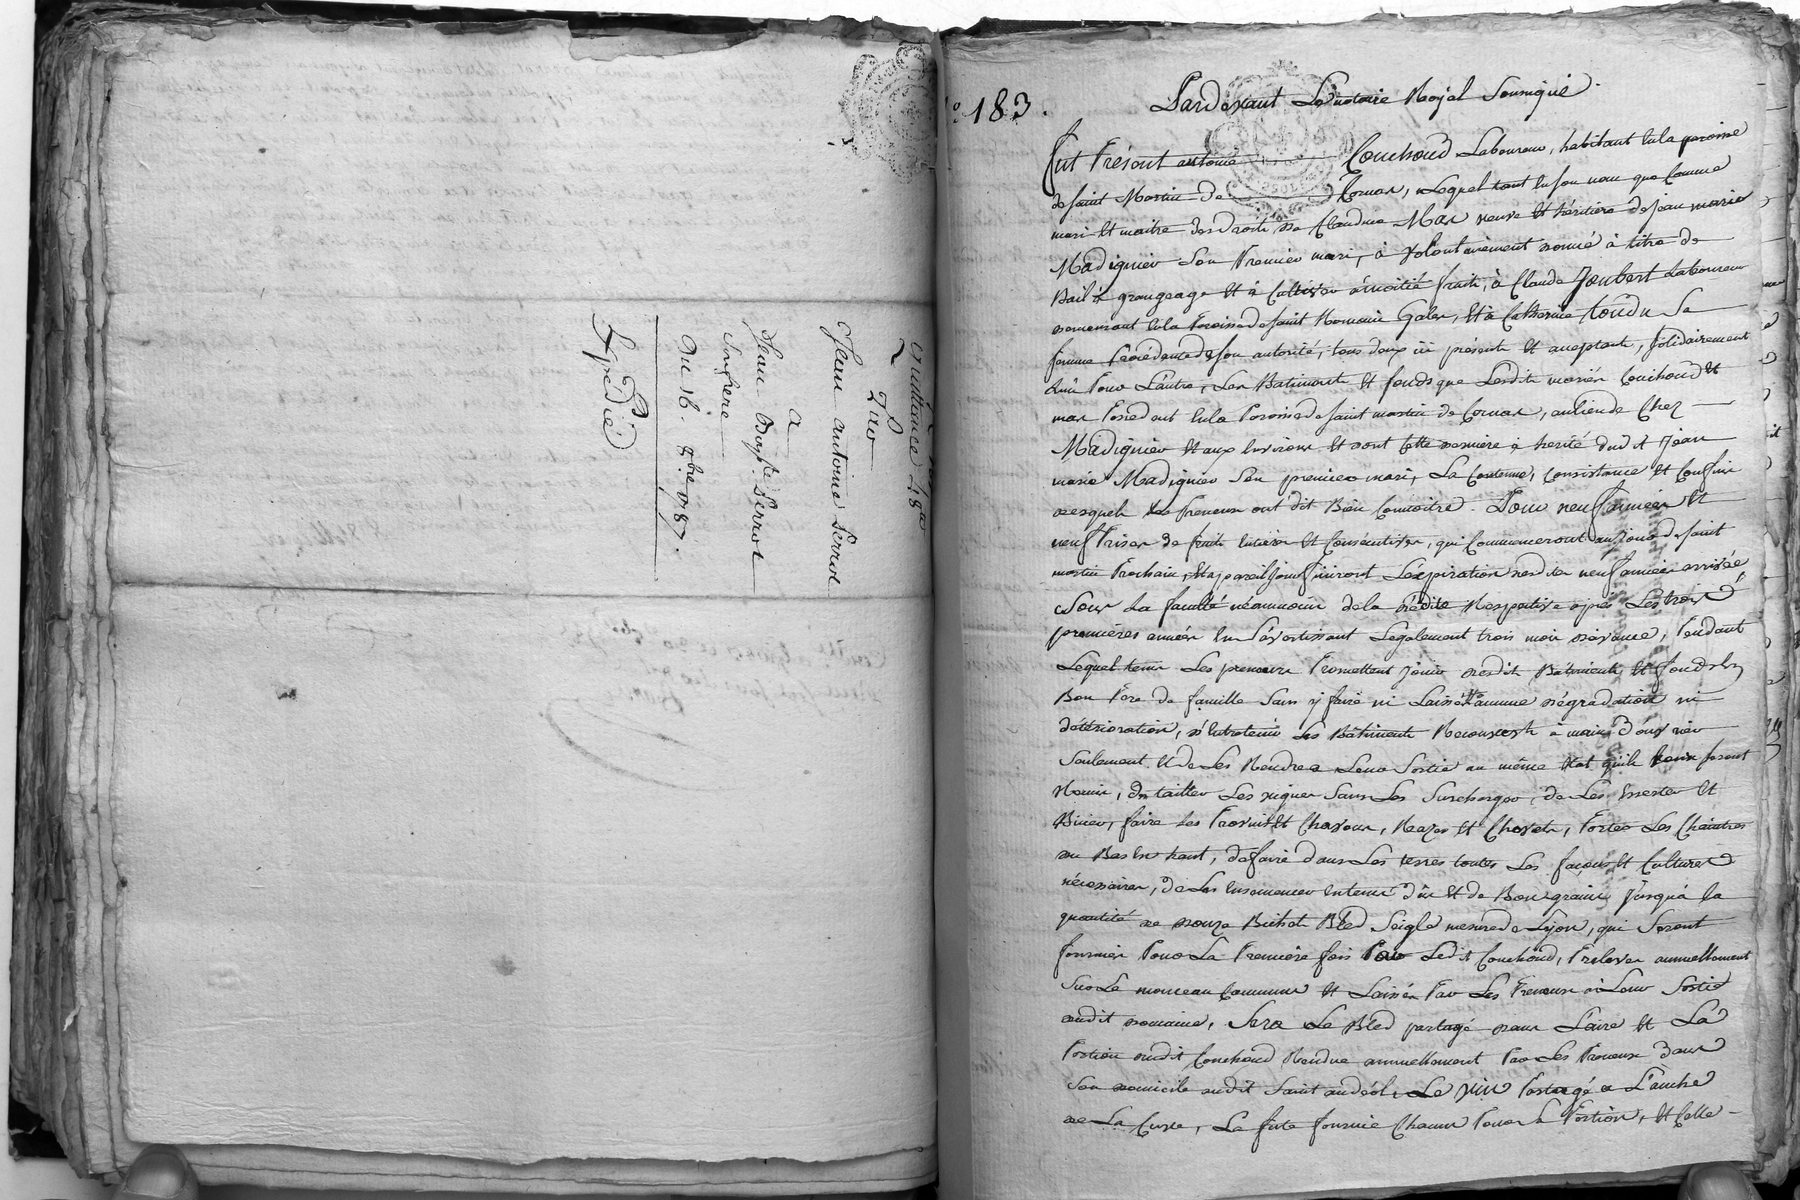 quittance 48ᵗᵗ
2
Par
Jean antoine Perrot
a
Jean Bapte. Perrot
Son frere
Du 16. 8bre 1787.
Expedié
183.
Pardevant Le notaire Royal Soussigné.
fut Présent antoine Couchoud Laboureur, habitant en la paroisse
de saint Martin de Cornas, Lequel tant en son nom que Comme
mari et maitre des droits de Claudine Mas veuve et héritiere de Jean marie
Madignier Son Premier mari, à volontairement donné à titre de
Bail à grangeage et à Cultiver à moitié fruits, à Claude Joubert Laboureur
demeurant en la Paroisse de saint Romain Galer, et à Catherine Sa
femme Procédante de son autorité, tous deux ici présents et acceptants, solidairement
L'un Pour L'autre, Les Batiments et fonds que Lesdits mariés Couchoud et
mas Possedent en la Paroisse de saint martin de Cornas, au lieu de Chez
Madignier et aux Environs et dont Cette derniere à herité dudit Jean
marie Madignier Son premier mari, La Contenue, Consistance et Confins
desquels Les Preneurs ont dit Bien Connoitre. Pour neuf années et
neuf Prises de fruits Entieres et Consécutives, qui Commenceront au jour de saint
martin Prochain, et à pareil jour finiront L'expiration desdites neuf années arrivée
Sous La faculté néanmoins de la Respective après Les trois
premières années En S'avertissant Légalement trois mois d'avance, Pendant
Lequel tems Les preneurs Promettent jouir desdits Bâtiments et fonds En
Bon Père de famille Sans y faire ni Laisser faire aucune dégradation ni
détérioration, d'Entretenir Les Bâtiments Recouverts à main d'ouvrier
Seulement et de Les Rendre a Leur Sortie au même Etat qu'ils Leur seront
Remis, de tailler Les vignes Sans Les Surcharger, de Les Essester et
Biner, faire Les Provins et Chavons, Razes et Chovets, Porter Les Chaintres
du Bas En haut, de faire dans Les terres toutes Les façons et Cultures
nécessaires, de Les Ensemencer En tems dû et de Bons grains jusqu'à la
quantité de douze Bichets Bled Seigle mesure de Lyon, qui Seront
fournies Pour La Premiere fois Par Ledit Couchoud, Prelevés annuellement
Sur Le monceau Commun et Laissés Par Les Preneurs à Leur Sortie
dudit domaine, Sera Le Bled partagé dans L'aire et La
Portion dudit Couchoud Rendue annuellement Par Les Preneurs dans
Son domicile audit Saint andéol, Le vin Partagé a L'anche
de La Cuve, La fute fournie Chacun Pour Sa Portion, et Celle